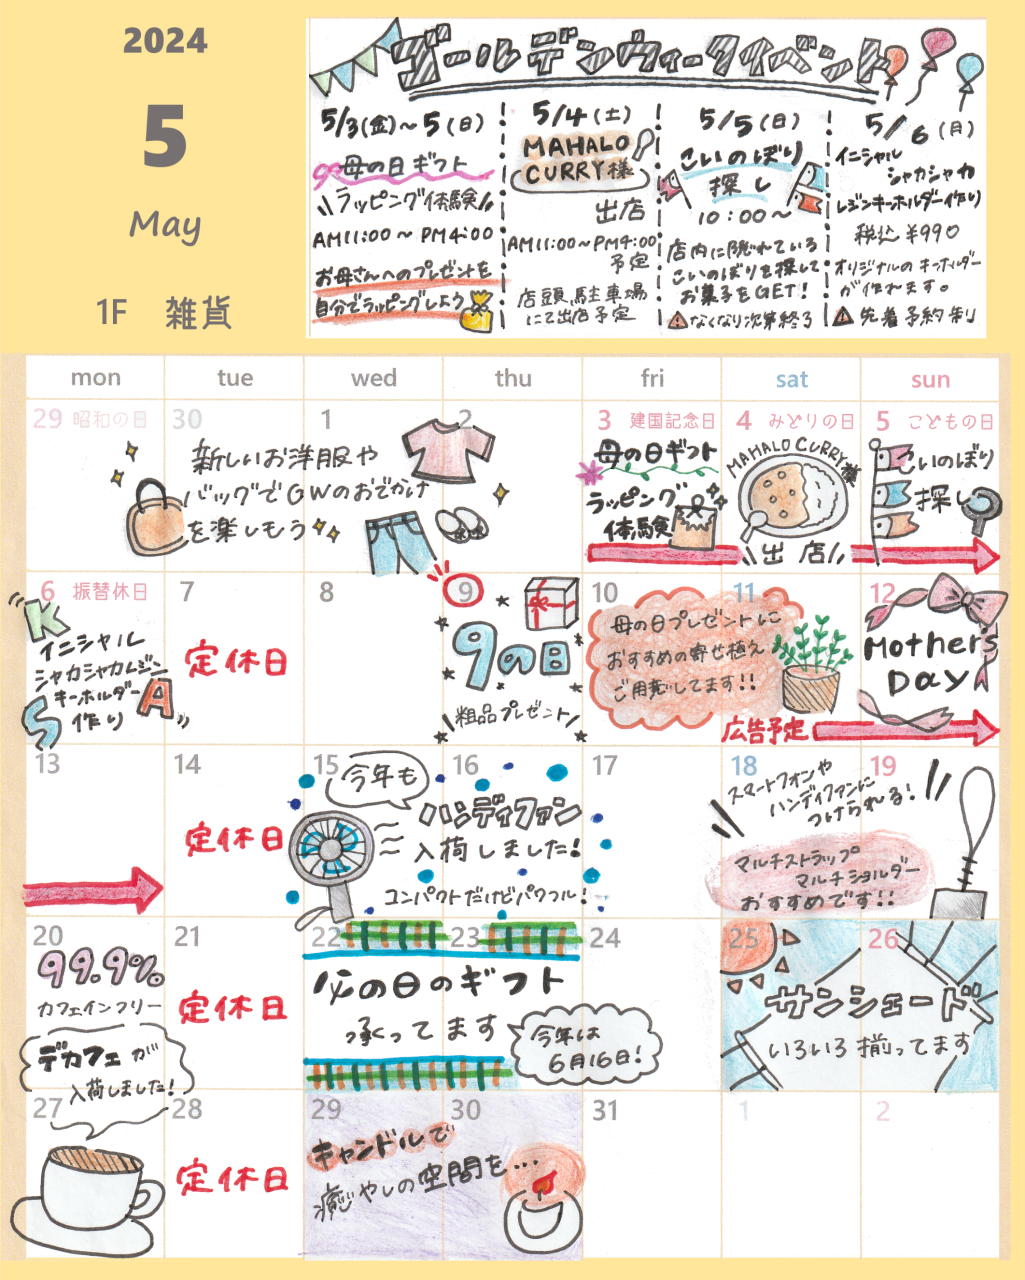 2024
5
May
1F 雑貨
ゴールデンウィークイベント
5/3(金)~5(日)
母の日ギフト
\\ラッピング体験//
AM11:00~PM4:00
お母さんへのプレゼントを
自分でラッピングしよう
5/4(土)
MAHALO
CURRY様
出店
AM11:00~PM4:00
予定
店頭駐車場
にて出店予定
5/5(日)
こいのぼり
探し
10:00~
店内に隠れている
こいのぼりを探して
お菓子をGET!
⚠なくなり次第終了
5/6(月)
イニシャル
シャカシャカ
レジンキーホルダー作り
税込¥990
オリジナルのキーホルダー
が作れます。
⚠先着予約制
mon tue wed thu fri sat sun
29 昭和の日 30 1 2 3 建国記念日 4 みどりの日 5 こどもの日
新しいお洋服や
バッグでGWのおでかけ
を楽しもう
母の日ギフト
ラッピング
体験
MAHALO CURRY様
\\出店//
こいのぼり
探し
6 振替休日 7 8 9 10 11 12
K
イニシャル
シャカシャカレジン
キーホルダー
作り
S
A
定休日
9の日
\粗品プレゼント/
母の日プレゼントに
おすすめの寄せ植え
ご用意してます!!
広告予定
Mother's
Day
13 14 15 16 17 18 19
定休日
今年も
ハンディファン
入荷しました!
コンパクトだけどパワフル!
スマートフォンや
ハンディファンに
つけられる!
マルチストラップ
マルチショルダー
おすすめです!!
20 21 22 23 24 25 26
99.9%
カフェインフリー
デカフェが
入荷しました!
定休日
父の日のギフト
承ってます
今年は
6月16日!
サンシェード
いろいろ揃ってます
27 28 29 30 31 1 2
定休日
キャンドルで
癒やしの空間を...